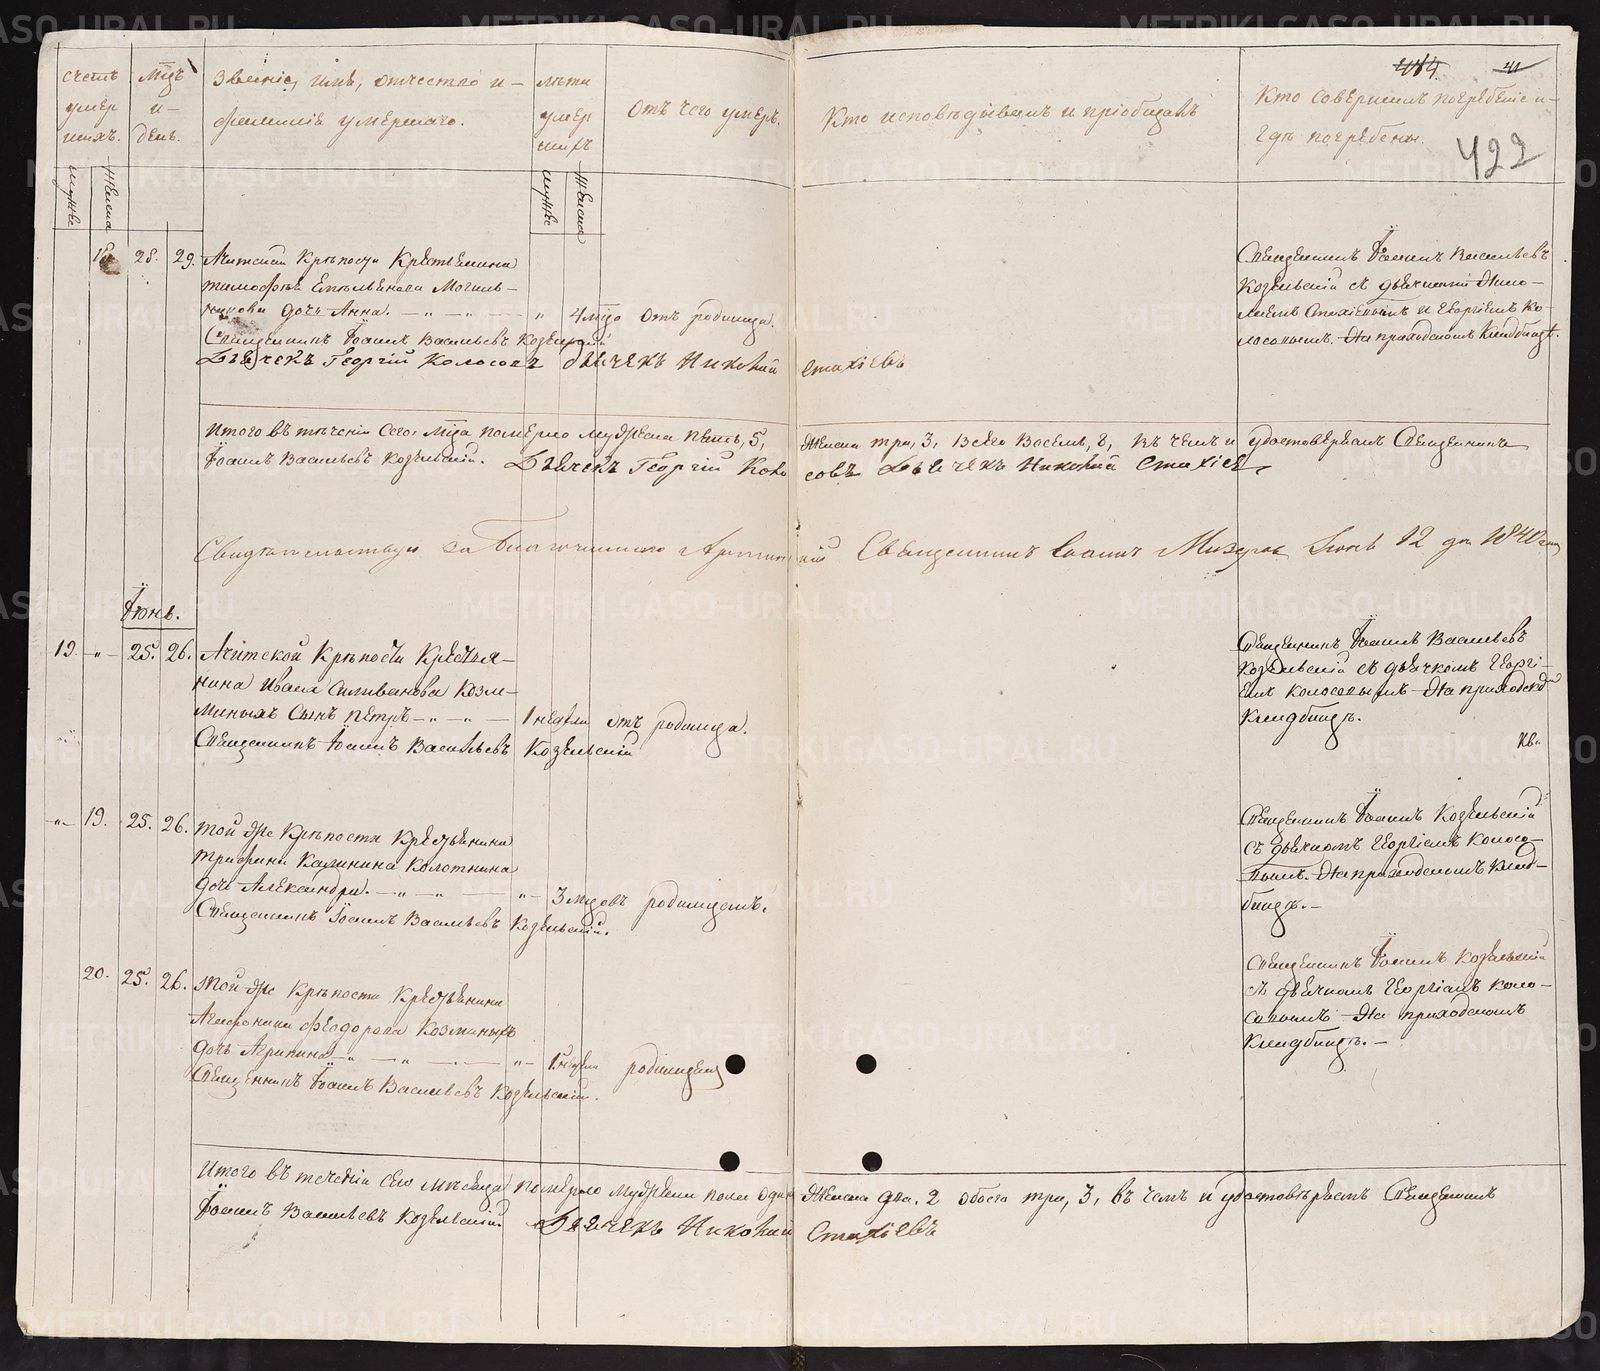 счетъ умер шихъ.
мцъ и день.
Званіе, имя, отчество и фамилія умершаго.
лѣта умер шихъ
Отъ чего умеръ.
Кто исповѣдывалъ и пріобщалъ
Кто совершилъ погребеніе и гдѣ погребены.
484.
41
422
мужеска
женска
мужеска
женска
18 28. 29. Ачитской Крѣпости Крестьянина
Тимофея Емельянова Могиль-
никова дочь Анна. — „ — „ — „ 4 мцо Отъ родимца.
Священникъ Іоаннъ Васильевъ Козельскій
Дьячекъ Георгій Колосовъ Дьячекъ Николай Стахіевъ
Священникъ Іоаннъ Васильевъ
Козельскій съ дьячками Нико-
лаемъ Стахіевымъ и Георгіемъ Ко-
лосовымъ. На приходскомъ Кладбищѣ.
Итого въ теченіи Сего мца померло мужеска пять, 5, женска три, 3, Всего Восемь, 8, въ чемъ и удостовѣряемъ Священникъ
Іоаннъ Васильевъ Козельскій. Дьячекъ Георгій Колосовъ Дьячекъ Николай Стахіевъ
Свидѣтельствую за Благочиннаго Артинскій Священникъ Іоаннъ Мизеровъ Іюнь 12 дня 1840 года
Іюнь.
19. „ 25. 26. Ачитской Крѣпости Крестья-
нина Ивана Силиванова Козм-
миныхъ Сынъ Петръ — „ — „ — 1 недѣли отъ родимца.
Священникъ Іоаннъ Васильевъ Козельскій
Священникъ Іоаннъ Васильевъ
Козельскій съ дьячкомъ Георгі-
емъ Колосовымъ На приходском
Кладбищѣ.
„ 19. 25. 26. Той же Крѣпости Крестьянина
Трифона Калинина Колотнина
дочь Александра. — „ — „ — „ 3 мцовъ родимцемъ.
Священникъ Іоаннъ Васильевъ Козельскій.
Священникъ Іоаннъ Козельскій
съ дьячкомъ Георгіемъ Колосо-
вымъ. На приходскомъ Клад-
бищѣ. —
20. 25. 26. Той же Крѣпости Крестьянина
Агафона Феодорова Козминыхъ
дочь Агрипина — „ — „ — „ 1 недѣли родимцемъ
Священникъ Іоаннъ Васильевъ Козельскій.
Священникъ Іоаннъ Козельскій
съ дьячкомъ Георгіемъ Коло-
совымъ На приходскомъ
Кладбищѣ. —
Итого въ теченіи сего мѣсяца померло мужеска пола одинъ женска два. 2 обоего три, 3, въ чемъ и удостовѣряемъ Священникъ
Іоаннъ Васильевъ Козельскій. Дьячекъ Николай Стахіевъ